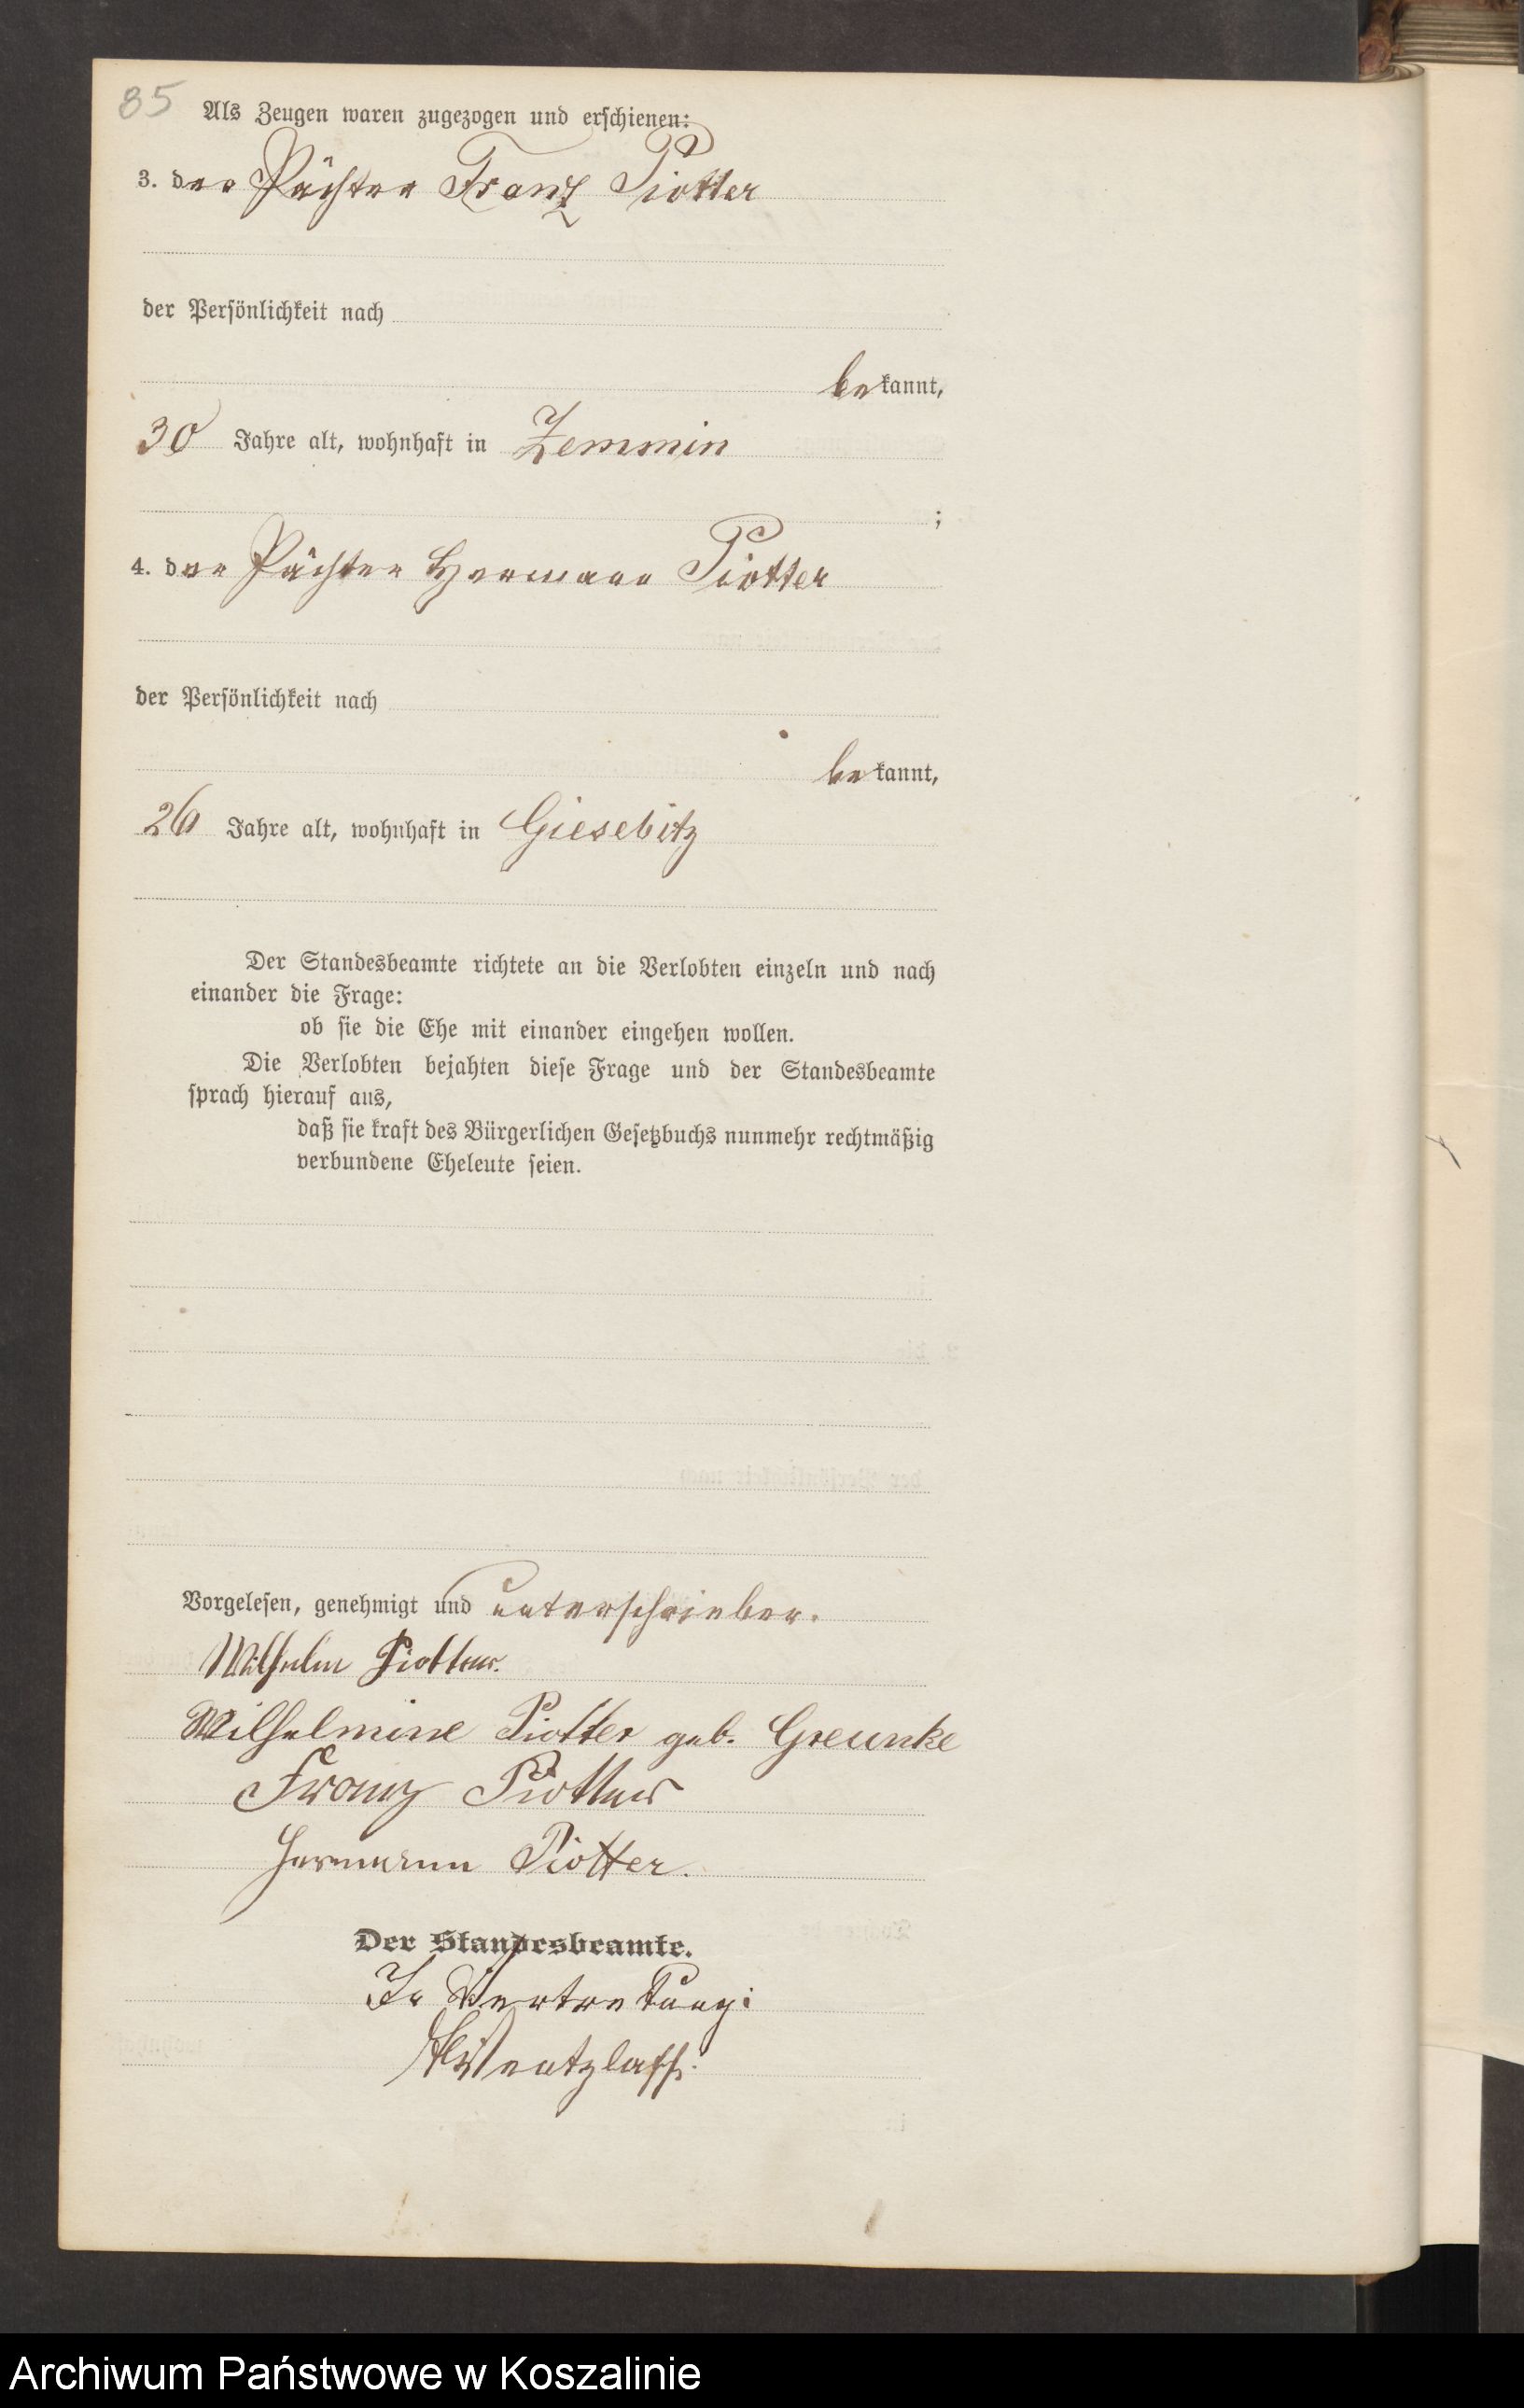 85
Als Zeugen waren zugezogen und erschienen:
3. der Pächter Franz Piotter
der Persönlichkeit nach
bekannt,
30 Jahre alt, wohnhaft in Zemmin
;
4. der Pächter Hermann Piotter
der Persönlichkeit nach
bekannt,
26 Jahre alt, wohnhaft in Giesebitz
Der Standesbeamte richtete an die Verlobten einzeln und nach
einander die Frage:
ob sie die Ehe mit einander eingehen wollen.
Die Verlobten bejahten diese Frage und der Standesbeamte
sprach hierauf aus,
daß sie kraft des Bürgerlichen Gesetzbuchs nunmehr rechtmäßig
verbundene Eheleute seien.
Vorgelesen, genehmigt und unterschrieben.
Wilhelm Piotter.
Wilhelmine Piotter geb. Greunke
Franz Piotter
Hermann Piotter.
Der Standesbeamte.
In Vertretung:
Wentzlaff.
Archiwum Państwowe w Koszalinie